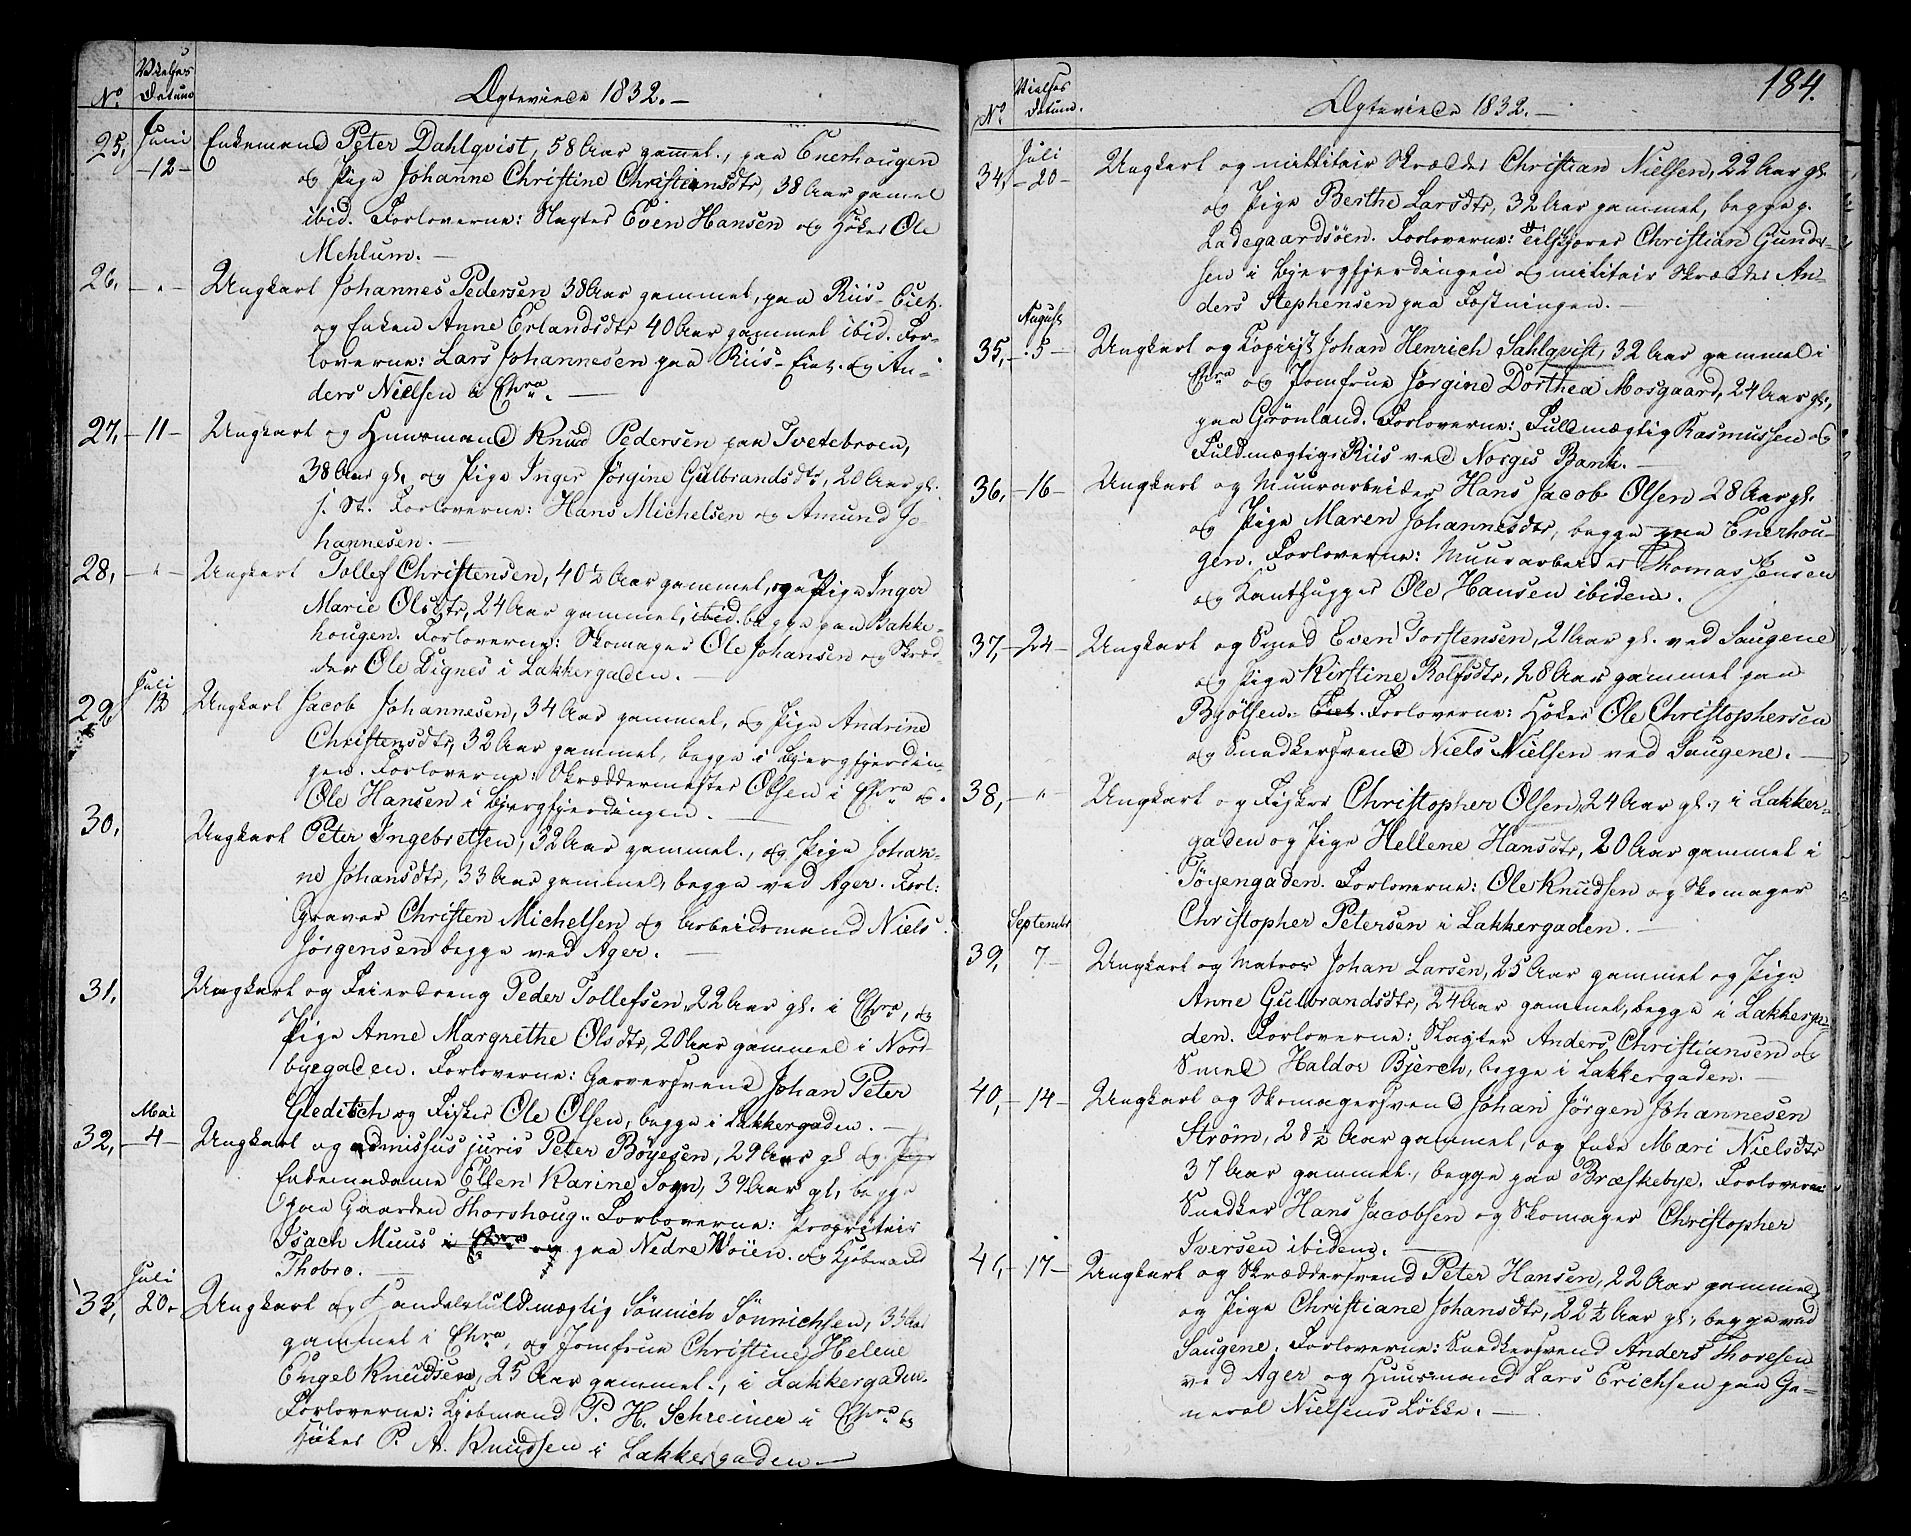 Vielses
No. Datum
Ægteviede 1832.-
25, Juni -12- Enkemand Peter Dahlqvist, 58 Aar gammel, paa Enerhougen
og Pige Johanne Christine Christiansdtr, 38 Aar gamel
ibid. Forloverne: Slagter Even Hansen og Höker Ole
Mehlum.-
26, - " - Ungkarl Johannes Pedersen 38 Aar gammel, paa Riis-Eiet.
og Enken Anne Erlandsdtr 40 Aar gammel ibid. For-
loverne: Lars Johannesen paa Riis-Eiet. og An-
ders Nielsen i Chra.-
27, -11- Ungkarl og Huusmand Knud Pedersen paa Tvetebroen,
38 Aar gl. og Pige Inger Jörgine Gulbrandsdtr, 20 Aar gl.
s. St. Forloverne: Hans Michelsen og Amund Jo-
hannesen.-
28, - " - Ungkarl Tollef Christensen, 40 1/2 Aar gammel, og Pige Inger
Marie Olsdtr, 24 Aar gammel, ibid. begge paa Bakke-
hougen. Forloverne: Skomager Ole Johansen og Skræd-
der Ole Dignes i Lakkergaden.-
29, Juli 12 Ungkarl Jacob Johannesen, 34 Aar gammel, og Pige Andrine
Christensdtr, 32 Aar gammel, begge i Bjergfjerdin-
gen. Forloverne: Skræddermester Olsen i Chra og
Ole Hansen i Bjergfjerdingen.-
30, Ungkarl Peter Ingebretsen, 32 Aar gammel, og Pige Johan-
ne Johansdtr, 33 Aar gammel, begge ved Ager. Forl:
Graver Christen Michelsen og Arbeidsmand Niels
Jörgensen begge ved Ager.-
31, Ungkarl og Feierdreng Peder Tollefsen, 22 Aar gl. i Chra, og
Pige Anne Margrethe Olsdtr, 20 Aar gammel i Nord-
byegaden. Forloverne: Garversvend Johan Peter
Gleditsch og Fisker Ole Olsen, begge i Lakkergaden.-
32, Mai -4- Ungkarl og admissus juris Peter Böyesen, 29 Aar gl og Pige
Enkemadame Ellen Karine Sogn, 39 Aar gl, begge
paa Gaarden Thorshoug. Forloverne: Proprietair
Isach Muus i Chra og paa Nedre Woien. og Kjöbmand
Thobro.-
33, Juli 20. Ungkarl og Handelsfuldmægtig Sönnich Sönnichsen, 31 Aar
gammel i Chra, og Jomfrue Christine Helene
Engel Knudsen, 25 Aar gammel, i Lakkergaden.
Forloverne: Kjöbmand P. H. Schreiner i Chra &
Höker P. A. Knudsen i Lakkergaden.-
184.
Vielses
No. Datum.
Ægteviede 1832.-
34, Juli -20- Ungkarl og militair Skrædder Christian Nielsen, 22 Aar gl.
og Pige Berthe Larsdtr, 32 Aar gammel, begge p.
Ladegaardsöen. Forloverne: Christian Gunder-
sen i Bjergfjerdingen og militair Skrædder An-
ders Stephensen paa Fæstningen.-
35, August -5- Ungkarl og Copiist Johan Henrich Sahlqvist, 32 Aar gammel i
Chra og Jomfrue Jörgine Dorthea Mosgaard, 24 Aar gl.,
paa Grönland. Forloverne: Fuldmægtig Rasmussen og
Fuldmægtig Riis ved Norges Bank.-
36, -16- Ungkarl og Muurarbeider Hans Jacob Olsen 28 Aar gl.
og Pige Maren Johannesdtr, begge paa Enerhou-
gen. Forloverne: Muurarbeider Thomas Jensen
og Kanthugger Ole Hansen ibidem.
37, -24- Ungkarl og Smed Even Torstensen, 21 Aar gl. ved Saugene
og Pige Kirstine Rolfsdtr, 28 Aar gammel paa
Bjölsen. Eiet. Forloverne: Höker Ole Christophersen
og Snedkersvend Niels Nielsen ved Saugene.-
38, " Ungkarl og Fisker Christopher Olsen, 24 Aar gl., i Lakker-
gaden og Pige Hellene Hansdtr, 20 Aar gammel i
Töyengaden. Forloverne: Ole Knudsen og Skomager
Christopher Petersen i Lakkergaden.-
39, September 7- Ungkarl og Matros Johan Larsen, 25 Aar gammel og Pige
Anne Gulbrandsdtr, 24 Aar gammel, begge i Lakkerga-
den. Forloverne: Slagter Anders Christiansen og
Smed Haldor Bjerch, begge i Lakkergaden.-
40, -14- Ungkarl og Skomagersvend Johan Jörgen Johannesen
Ström, 28 1/2 Aar gammel, og Enke Mari Nielsdtr
37 Aar gammel, begge paa Bræskebye. Forloverne:
Snedker Hans Jacobsen og Skomager Christopher
Iversen ibidem.-
41, -17- Ungkarl og Skræddersvend Peter Hansen, 22 Aar gammel
og Pige Christiane Johansdtr, 22 1/2 Aar gl., begge ved
Saugene. Forloverne: Snedkersvend Anders Thoresen
ved Ager og Huusmand Lars Erichsen paa Ge-
neral Nielsens Lökke.-